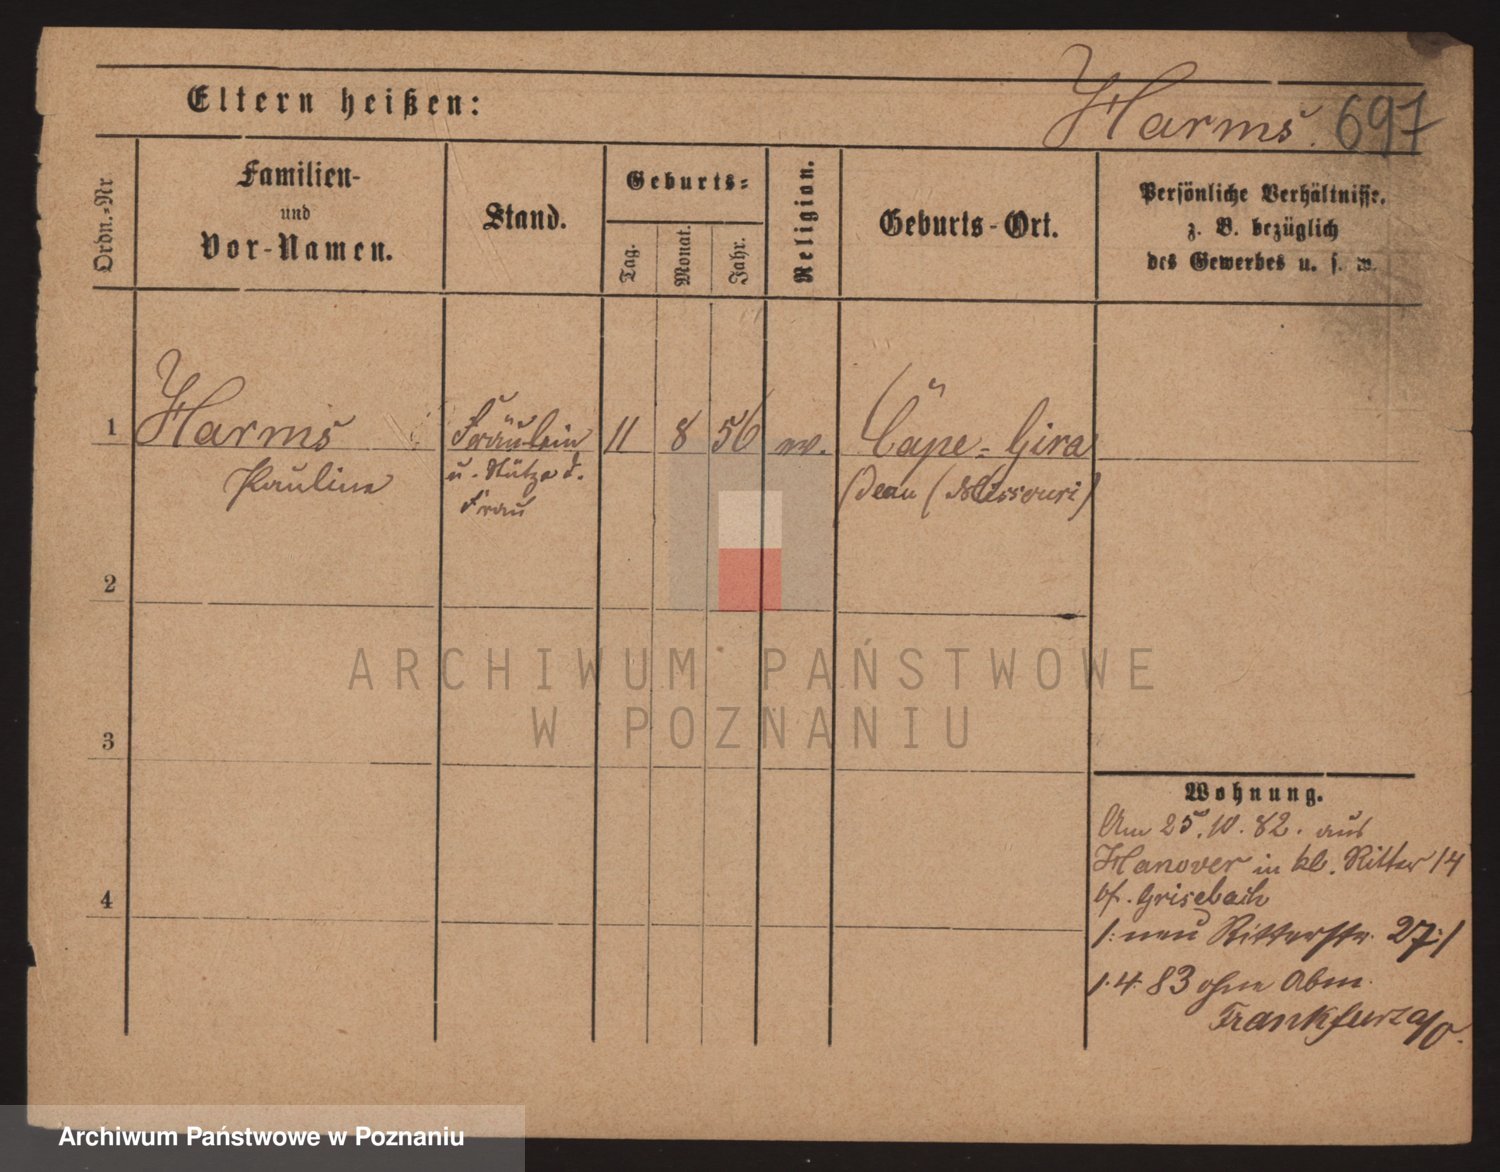 Eltern heißen:
Harms. 697
Ordn.-Nr
Familien-
und
Vor-Namen.
Stand.
Geburts-
Tag.
Monat.
Jahr.
Religion.
Geburts-Ort.
Persönliche Verhältnisse,
z. B. bezüglich
des Gewerbes u. s. w.
1 Harms Fräulein 11 8 56 ev. Cape-Gira
Pauline u. Stütze d. deau (Missouri)
Frau
2
ARCHIWUM PAŃSTWOWE
W POZNANIU
3
Wohnung.
Am 25.10.82. aus
Hanover in kl. Ritter 14
Grisebach
/: neu Ritterstr. 27 :/
1.4.83 ohne Abm.
Frankfurt a/O.
4
Archiwum Państwowe w Poznaniu